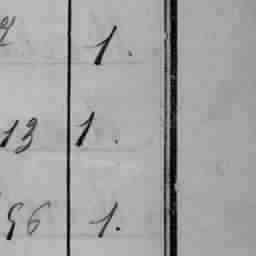 1.
13 1.
96 1.